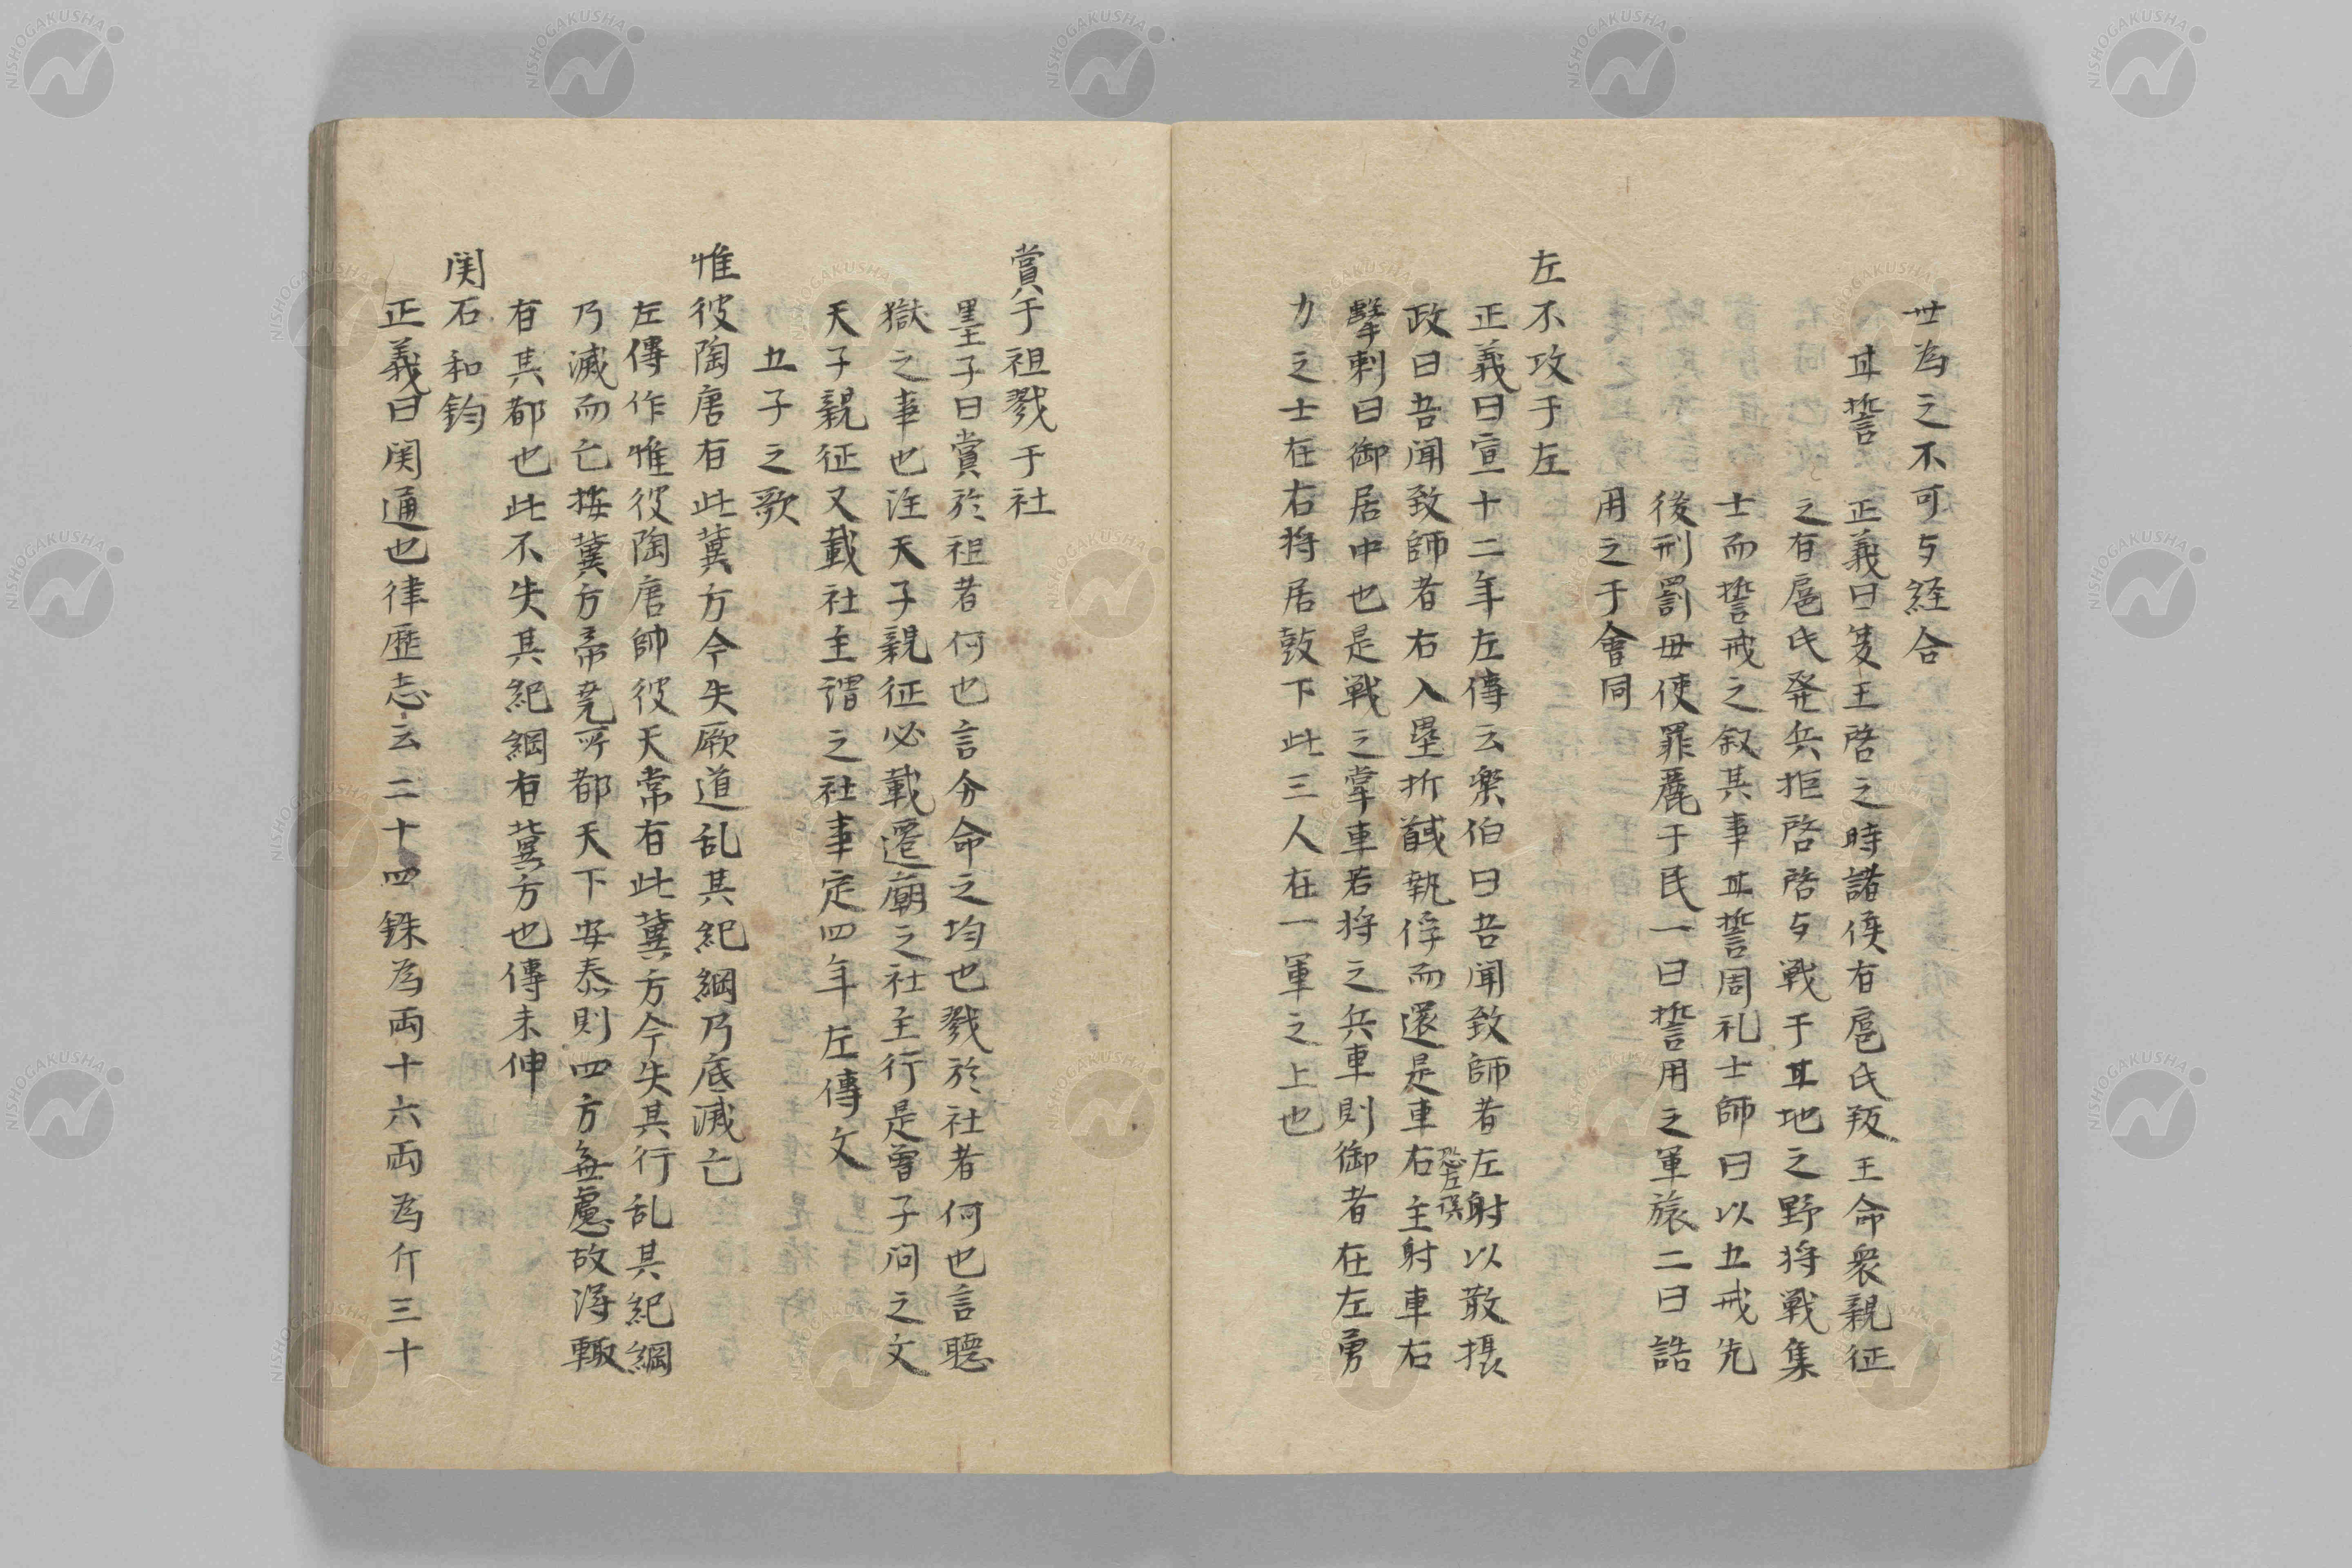 世為之不可与経合
甘誓 正義曰夏王啓之時諸侯有扈氏叛王命衆親征
之有扈氏発兵拒啓啓与戦于甘地之野将戦集
士而誓戒之叙其事甘誓周礼士師曰以五戒先
後刑罰毋使罪麗于民一曰誓用之軍旅二曰誥
用之于會同
左不攻于左
正義曰宣十二年左傳云楽伯曰吾聞致師者左射以菆摂
恐左誤
政曰吾聞致師者右入塁折馘執俘而還是車右主射車右
撃刺曰御居中也是戦之掌車若将之兵車則御者在左勇
力之士在右将居鼓下此三人在一軍之上也
賞于祖戮于社
墨子曰賞於祖者何也言分命之均也戮於社者何也言聴
獄之事也注天子親征必載遷廟之社主行是曽子問之文
天子親征又載社主謂之社事定四年左傳文
五子之歌
惟彼陶唐有此冀方今失厥道乱其紀綱乃底滅亡
左傳作惟彼陶唐帥彼天常有此冀方今失其行乱其紀綱
乃滅而亡按冀方帝尭所都天下安泰則四方無慮故得輙
有其都也此不失其紀綱有冀方也傳未伸
関石和鈞
正義曰関通也律歴志云二十四銖為両十六両為斤三十
NISHOGAKUSHA